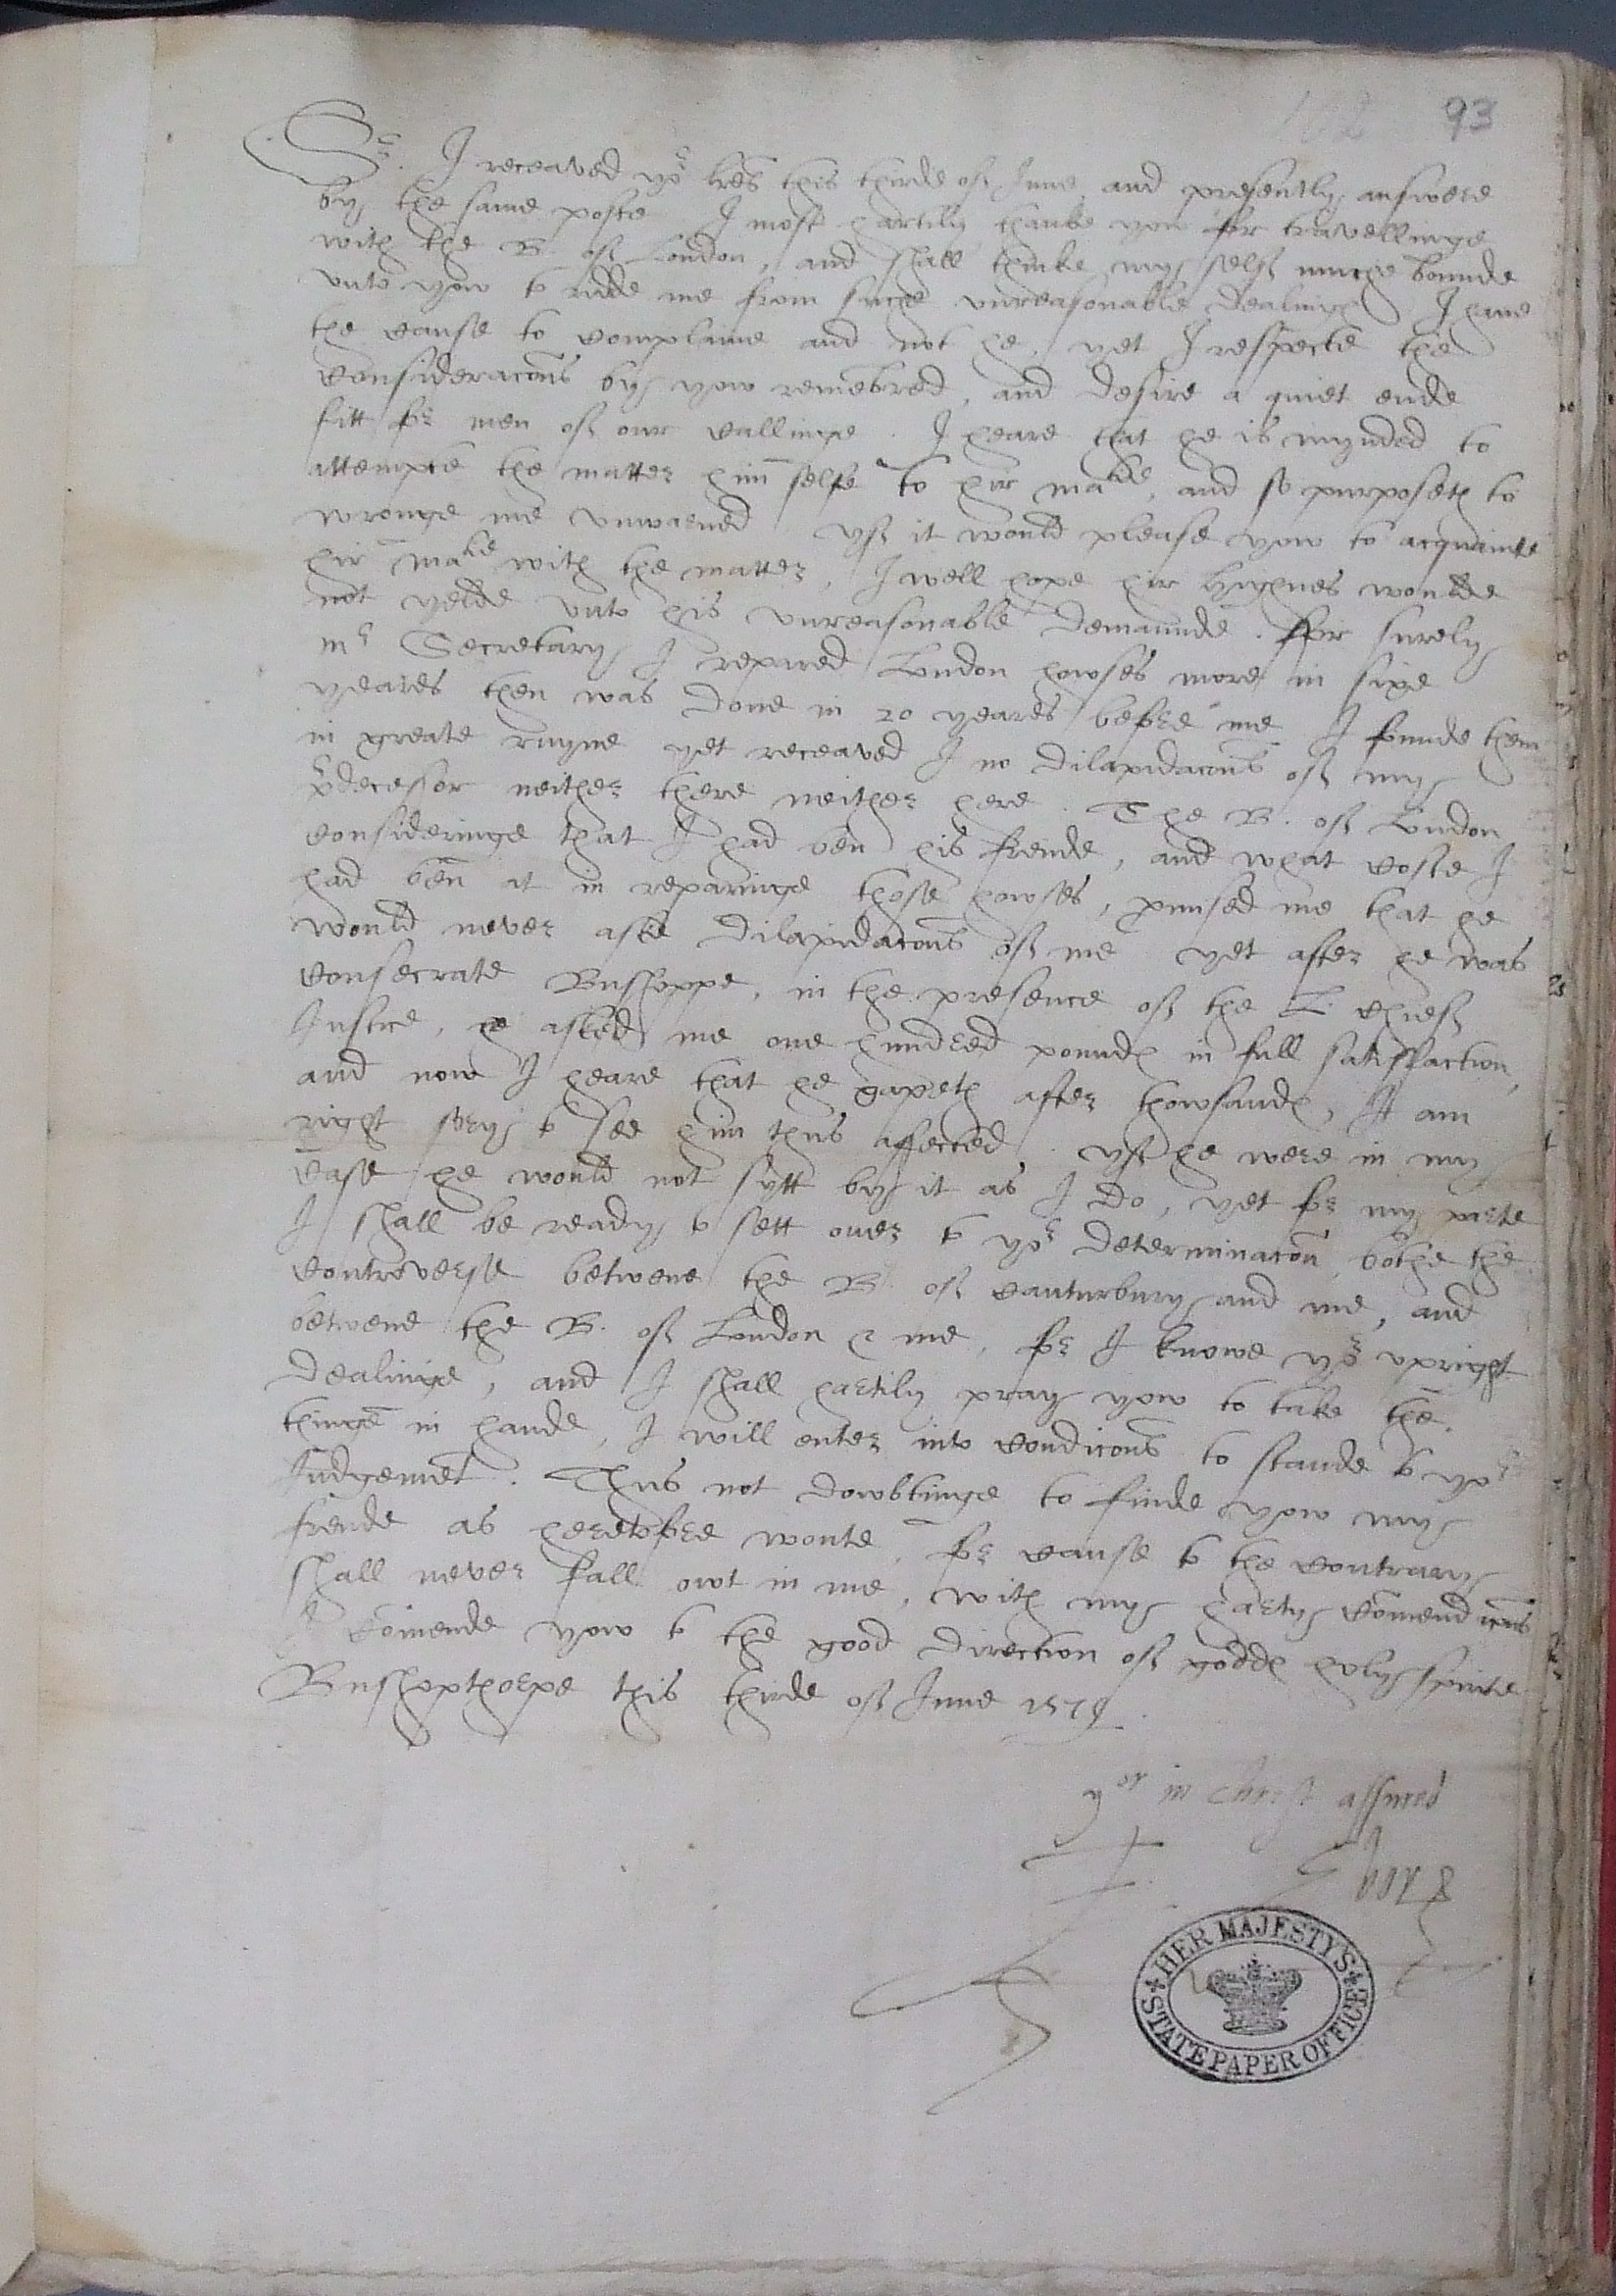 93
Sr. I receaved yor lres this thirde of June and presently answere
by the same poste I most hartily thanke yow for travellinge
with the B. of London, and shall thinke my self muche bounde
vnto yow to ridde me from suche vnreasonable dealinge I have
the cause to complaine and not he. yet I respecte the
consideracons by yow remembred, and desire a quiet ende
fitt for men of our callinge. I heare that he is mynded to
attempte the matter him selfe to hir matie, and so purposeth to
wronge me vnwarned yf it would please yow to acquainte
hir matie with the matter, I well hope hir hyghnes woulde
not yelde vnto his vnreasonable demaunde. ffor surely
mr Secretary I repared London howses more in sixe
yeares then was done in 20 yeares before me I founde them
in greate ruyne yet receaved I no dilapidacons of my
predecessor neither there neither here. The B. of London
consideringe that I had ben his frende, and what coste I
had ben at in reparinge those howses, promised me that he
would never aske dilapidacons of me yet after he was
consecrate Bushoppe, in the presence of the L. chief
Justice, he asked me one hundred pounds in full satisfaction,
and now I heare that he gapeth after thowsands, I am
right sory to see him thus affected. yf he were in my
case he would not sytt by it as I do, yet for my parte
I shall be ready to sett over to yor determinacon bothe the
controversie betwene the B. of Canturbury and me, and
betwene the B. of London & me, for I knowe yor vpright
dealinge, and I shall hartily pray yow to take the
thinge in hande, I will enter into condicons to stande to yor
Judgement. Thus not dowbtinge to finde yow my
frende as heretofore wonte, for cause to the contrary
shall never fall owt in me, with my harty comendacons
I comende yow to the good direction of gods holy spirite
Bushopthorpe this thirde of June 1579.
yor in Christ assured
Ebor
HER MAJESTY'S STATE PAPER OFFICE